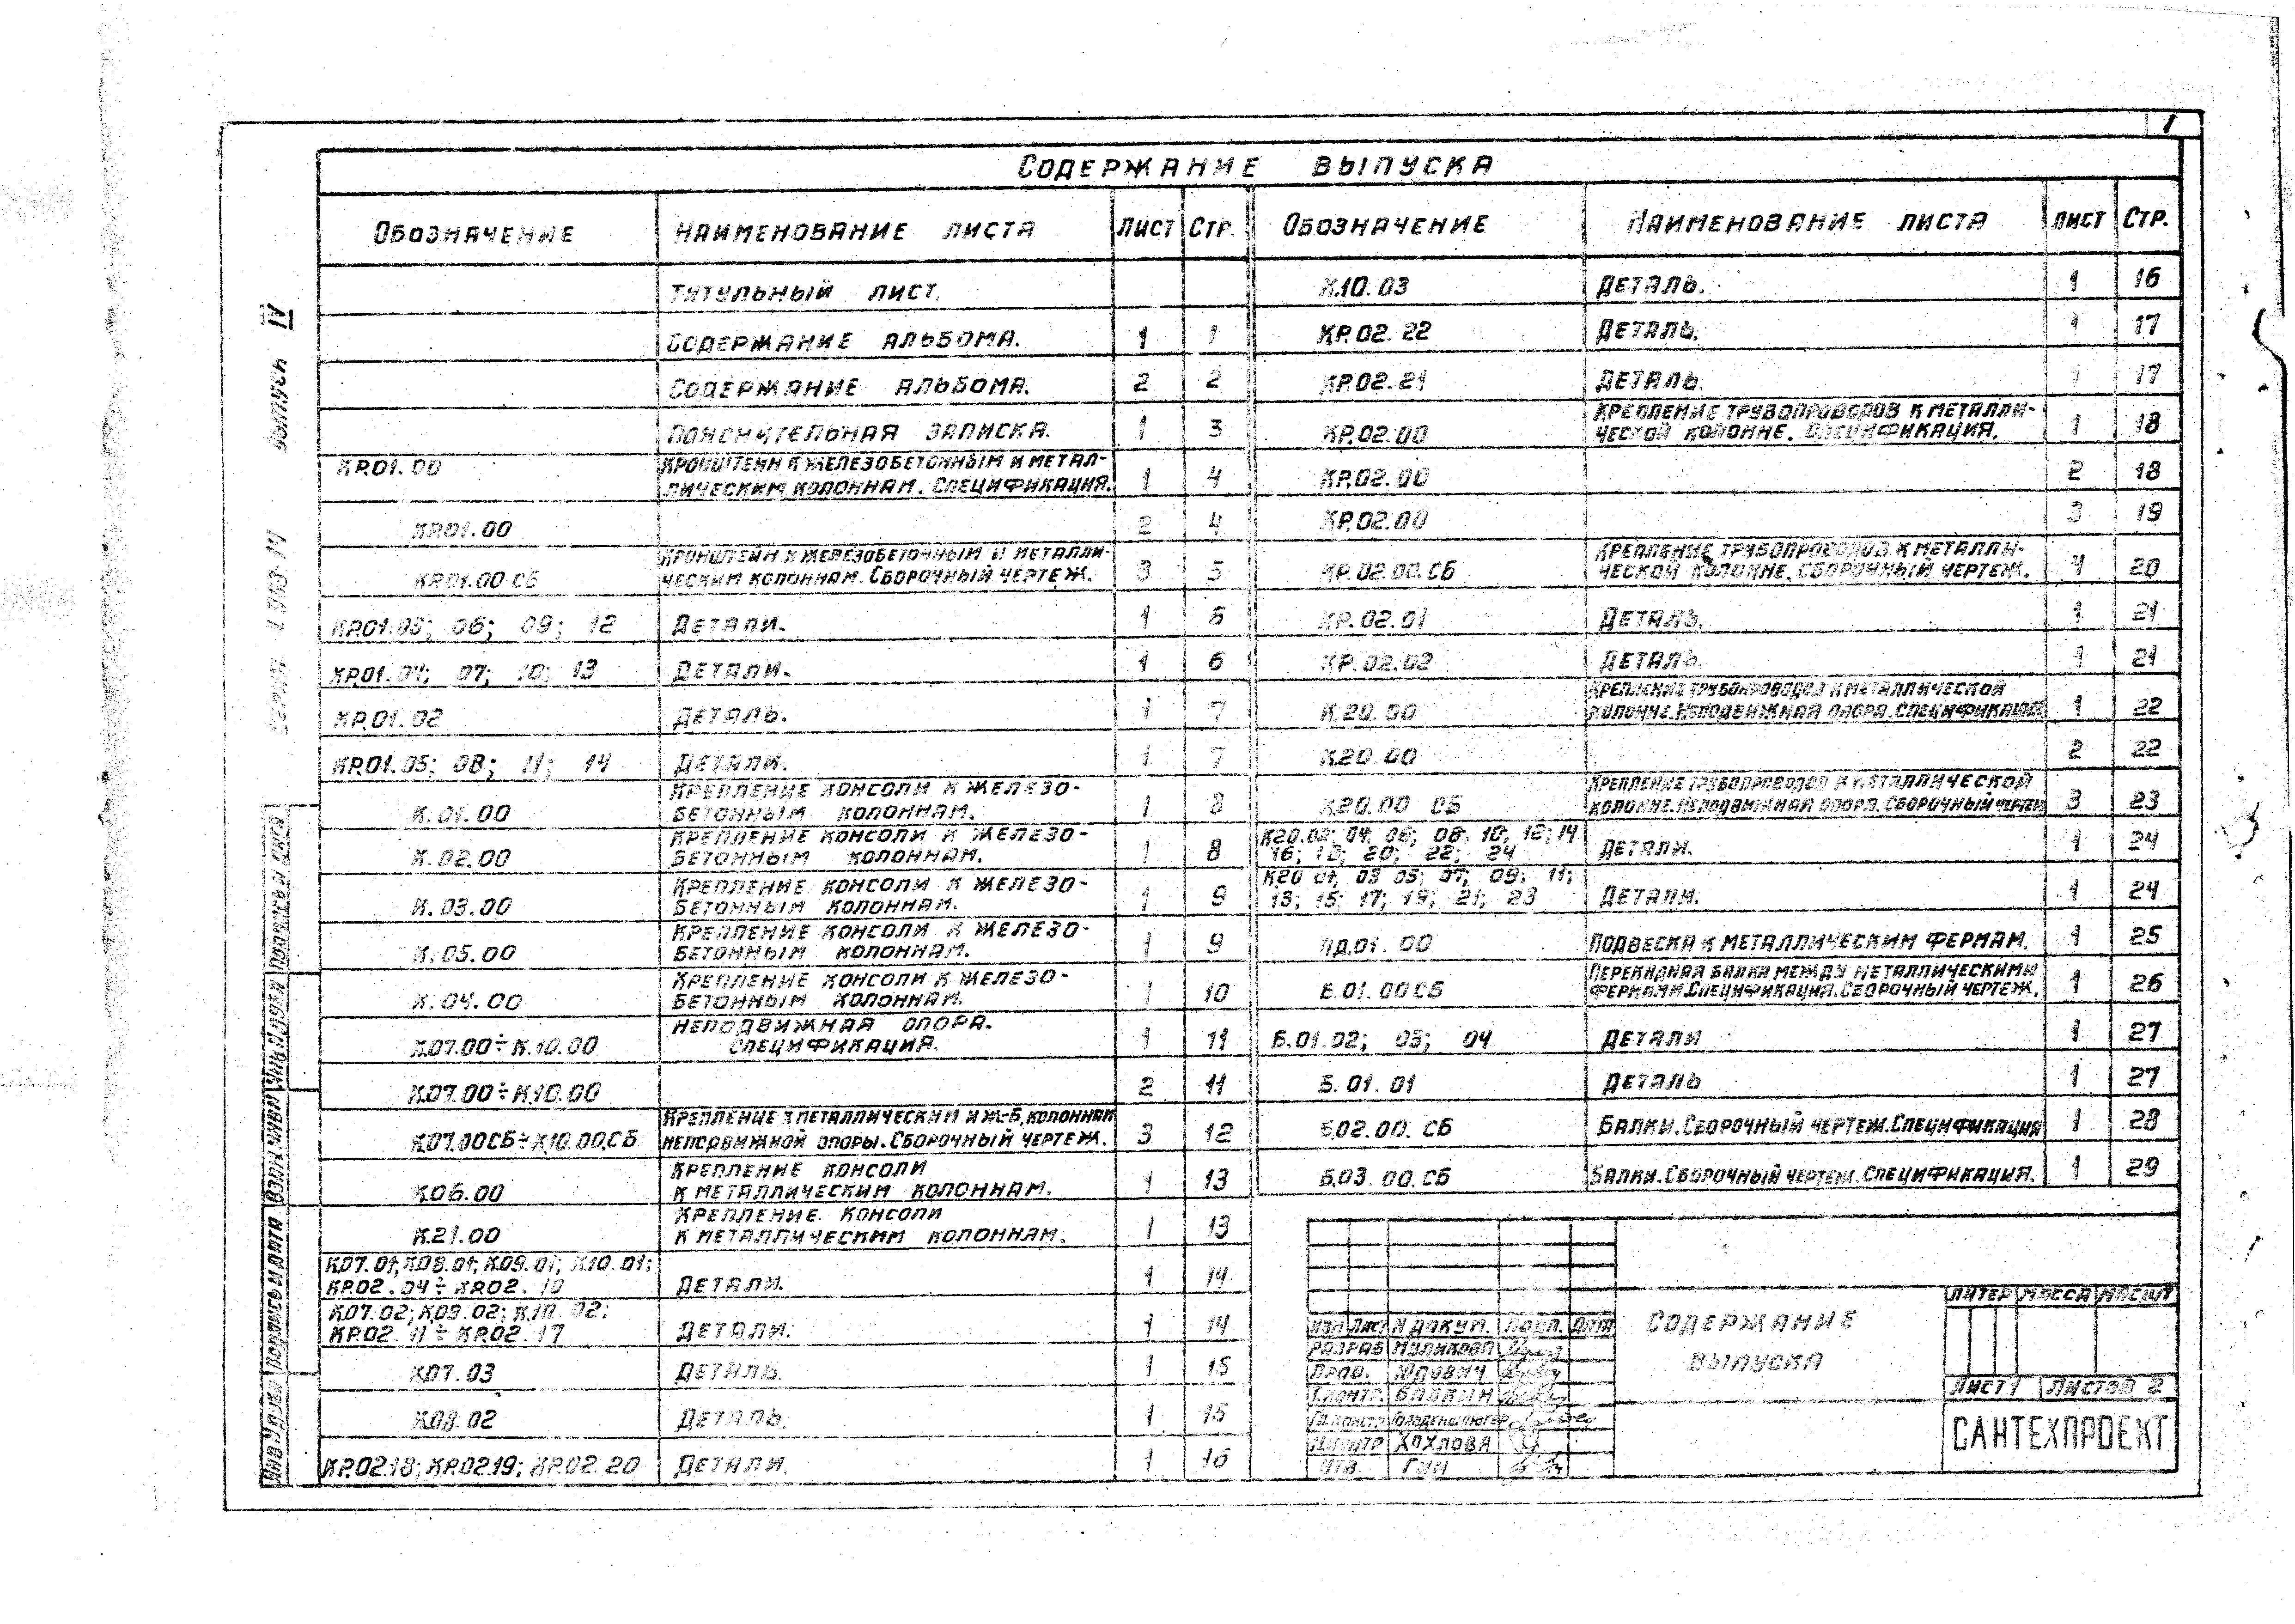 1
СОДЕРЖАНИЕ ВЫПУСКА
ОБОЗНАЧЕНИЕ НАИМЕНОВАНИЕ ЛИСТА ЛИСТ СТР.
ТИТУЛЬНЫЙ ЛИСТ.
СОДЕРЖАНИЕ АЛЬБОМА. 1 1
СОДЕРЖАНИЕ АЛЬБОМА. 2 2
ПОЯСНИТЕЛЬНАЯ ЗАПИСКА. 1 3
КР.01.00 КРОНШТЕЙН К ЖЕЛЕЗОБЕТОННЫМ И МЕТАЛ-
ЛИЧЕСКИМ КОЛОННАМ. СПЕЦИФИКАЦИЯ. 1 4
КР.01.00 2 4
КР.01.00 СБ КРОНШТЕЙН К ЖЕЛЕЗОБЕТОННЫМ И МЕТАЛЛИ-
ЧЕСКИМ КОЛОННАМ. СБОРОЧНЫЙ ЧЕРТЕЖ. 3 5
06; 09; 12 ДЕТАЛИ. 1 6
КР.01.04; 07; 10; 13 ДЕТАЛИ. 1 6
КР.01.02 ДЕТАЛЬ. 1 7
КР.01.05; 08; 11; 14 ДЕТАЛИ. 1 7
К.01.00 КРЕПЛЕНИЕ КОНСОЛИ К ЖЕЛЕЗО-
БЕТОННЫМ КОЛОННАМ. 1 8
К.02.00 КРЕПЛЕНИЕ КОНСОЛИ К ЖЕЛЕЗО-
БЕТОННЫМ КОЛОННАМ. 1 8
К.03.00 КРЕПЛЕНИЕ КОНСОЛИ К ЖЕЛЕЗО-
БЕТОННЫМ КОЛОННАМ. 1 9
К.05.00 КРЕПЛЕНИЕ КОНСОЛИ К ЖЕЛЕЗО-
БЕТОННЫМ КОЛОННАМ. 1 9
К.04.00 КРЕПЛЕНИЕ КОНСОЛИ К ЖЕЛЕЗО-
БЕТОННЫМ КОЛОННАМ. 1 10
К.07.00÷К.10.00 НЕПОДВИЖНАЯ ОПОРА.
СПЕЦИФИКАЦИЯ. 1 11
К.07.00÷К.10.00 2 11
К.07.00СБ÷К.10.00.СБ КРЕПЛЕНИЕ К МЕТАЛЛИЧЕСКИМ И Ж-Б. КОЛОННАМ
НЕПОДВИЖНОЙ ОПОРЫ. СБОРОЧНЫЙ ЧЕРТЕЖ. 3 12
К.06.00 КРЕПЛЕНИЕ КОНСОЛИ
К МЕТАЛЛИЧЕСКИМ КОЛОННАМ. 1 13
К.21.00 КРЕПЛЕНИЕ КОНСОЛИ
К МЕТАЛЛИЧЕСКИМ КОЛОННАМ. 1 13
К.07.01; К.08.01; К.09.01; К.10.01;
КР.02.04÷КР.02.10 ДЕТАЛИ. 1 14
К.07.02; К.09.02; К.10.02;
КР.02.11÷КР.02.17 ДЕТАЛИ. 1 14
К.07.03 ДЕТАЛЬ. 1 15
К.08.02 ДЕТАЛЬ. 1 15
КР.02.18; КР.02.19; КР.02.20 ДЕТАЛИ. 1 16
ОБОЗНАЧЕНИЕ НАИМЕНОВАНИЕ ЛИСТА ЛИСТ СТР.
К.10.03 ДЕТАЛЬ. 1 16
КР.02.22 ДЕТАЛЬ. 1 17
КР.02.21 ДЕТАЛЬ. 1 17
КР.02.00 КРЕПЛЕНИЕ ТРУБОПРОВОДОВ К МЕТАЛЛИ-
ЧЕСКОЙ КОЛОННЕ. СПЕЦИФИКАЦИЯ. 1 18
КР.02.00 2 18
КР.02.00 3 19
КР.02.00.СБ КРЕПЛЕНИЕ ТРУБОПРОВОДОВ К МЕТАЛЛИ-
ЧЕСКОЙ КОЛОННЕ. СБОРОЧНЫЙ ЧЕРТЕЖ. 4 20
КР.02.01 ДЕТАЛЬ. 1 21
КР.02.02 ДЕТАЛЬ. 1 21
К.20.00 КРЕПЛЕНИЕ ТРУБОПРОВОДОВ К МЕТАЛЛИЧЕСКОЙ
КОЛОННЕ. НЕПОДВИЖНАЯ ОПОРА. СПЕЦИФИКАЦИЯ 1 22
К.20.00 2 22
К.20.00 СБ КРЕПЛЕНИЕ ТРУБОПРОВОДОВ К МЕТАЛЛИЧЕСКОЙ
КОЛОННЕ. НЕПОДВИЖНАЯ ОПОРА. СБОРОЧНЫЙ ЧЕРТЕЖ 3 23
К20.02; 04; 06; 08; 10; 12; 14
16; 18; 20; 22; 24 ДЕТАЛИ. 1 24
К20 01, 03 05; 07; 09; 11;
13; 15; 17; 19; 21; 23 ДЕТАЛИ. 1 24
ПД.01.00 ПОДВЕСКА К МЕТАЛЛИЧЕСКИМ ФЕРМАМ. 1 25
Б.01.00СБ ПЕРЕКИДНАЯ БАЛКА МЕЖДУ МЕТАЛЛИЧЕСКИМИ
ФЕРМАМИ. СПЕЦИФИКАЦИЯ. СБОРОЧНЫЙ ЧЕРТЕЖ. 1 26
Б.01.02; 03; 04 ДЕТАЛИ 1 27
Б.01.01 ДЕТАЛЬ 1 27
Б.02.00.СБ БАЛКИ. СБОРОЧНЫЙ ЧЕРТЕЖ. СПЕЦИФИКАЦИЯ 1 28
Б.03.00.СБ БАЛКИ. СБОРОЧНЫЙ ЧЕРТЕЖ. СПЕЦИФИКАЦИЯ. 1 29
ИЗМ ЛИСТ N ДОКУМ. ПОДП. ДАТА
РАЗРАБ МУЛИКОВА
ПРОВ. ЮДОВИЧ
Т.КОНТР.
ГЛ.КОНСТР
Н.КОНТР ХОХЛОВА
УТВ.
СОДЕРЖАНИЕ
ВЫПУСКА
ЛИТЕР МАССА МАСШТ
ЛИСТ 1 ЛИСТОВ 2
САНТЕХПРОЕКТ
ВЫПУСК IV
СЕРИЯ
ПОДПИСЬ И ДАТА